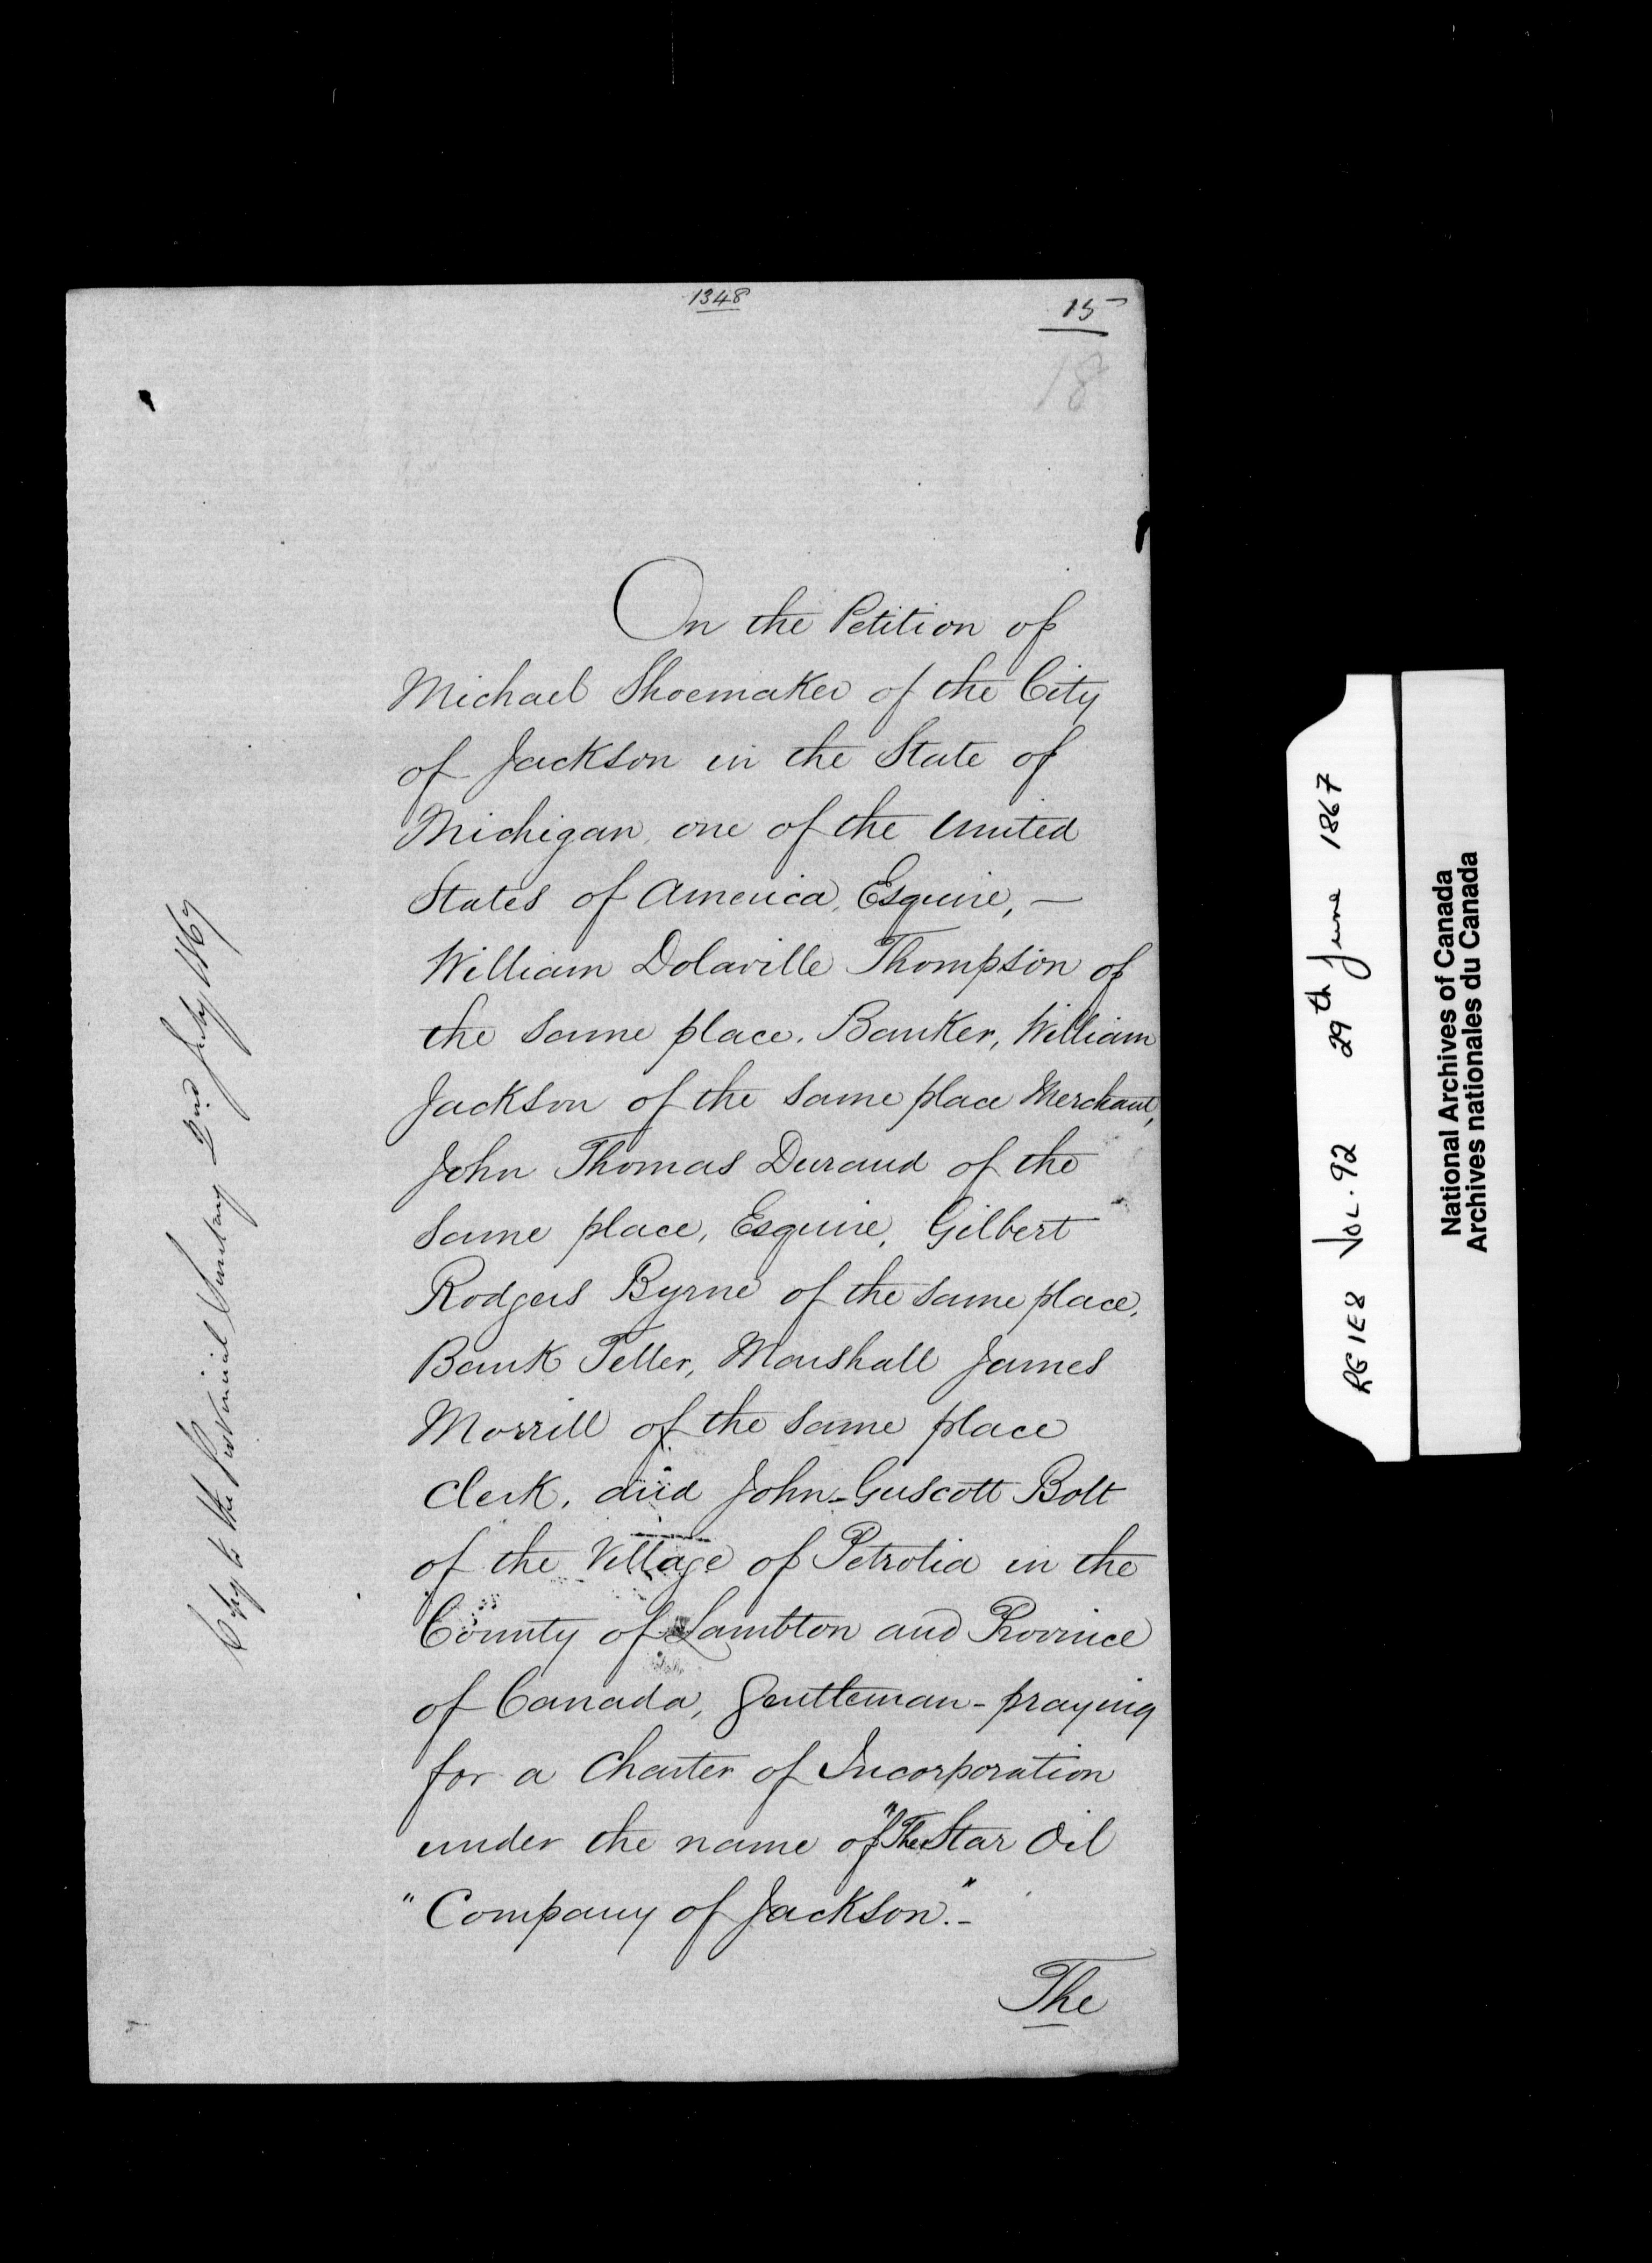 1348
15
18
On the Petition of
Michael Shoemaker of the City
of Jackson in the State of
Michigan, one of the United
States of America, Esquire, —
William Dolaville Thompson of
the same place. Banker, William
Jackson of the same place Merchant,
John Thomas Durand of the
same place, Esquire, Gilbert
Rodgers Byrne of the same place,
Bank Teller, Marshall James
Morrill of the same place
Clerk, and John Guscott Bolt
of the Village of Petrolia in the
County of Lambton and Province
of Canada, Gentleman - praying
for a Charter of Incorporation
under the name of "The Star Oil
"Company of Jackson." -
The
Copy to the Provincial Secretary 2nd July 1867
RG1E8 VOL. 92 29th June 1867
National Archives of Canada
Archives nationales du Canada